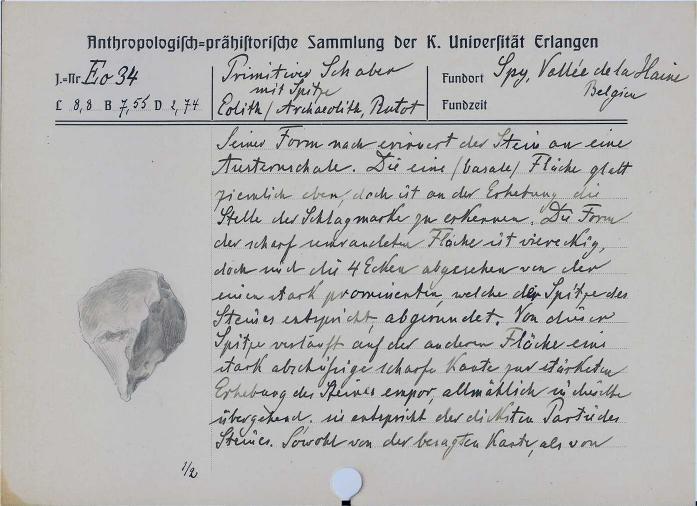 Anthropologisch=prähistorische Sammlung der K. Universität Erlangen
J.=Nr. Eo 34
Primitiver Schaber
mit Spitze
Eolith / Archaeolith, Rutot
Fundort Spy, Vallée de la Haine
Belgien
L 8,8 B 7,55 D 2,74
Fundzeit
Seiner Form nach erinnert der Stein an eine
Austernschale. Die eine /basale/ Fläche glatt
ziemlich eben, doch ist an der Erhebung die
Stelle der Schlagmarke zu erkennen. Die Form
der scharf umrandeten Fläche ist viereckig,
doch sind die 4 Ecken abgesehen von der
einen stark prominenten, welche der Spitze des
Steines entspricht, abgerundet. Von dieser
Spitze verläuft auf der anderen Fläche eine
stark abschüssige scharfe Kante zur stärksten
Erhebung des Steines empor, allmählich in dieselbe
übergehend. sie entspricht der dicksten Partie des
Steines. Sowohl von der besagten Kante, als von
1/2